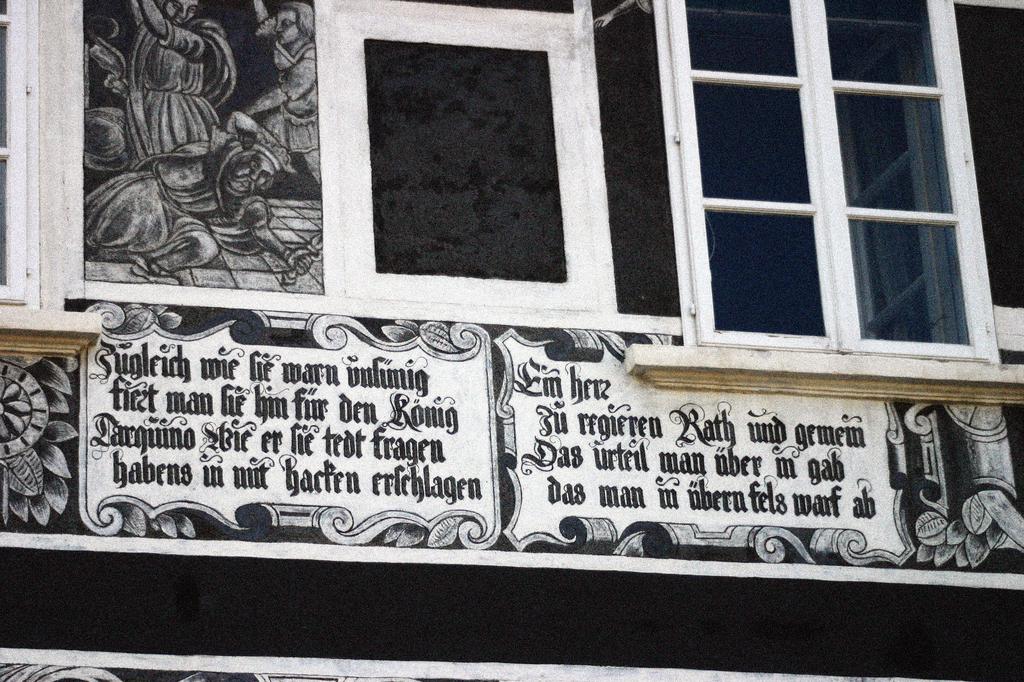 Zugleich wie sie warn unsinnig
fiert man sie hin für den König
Tarquino Wie er sie tedt fragen
habens in mit Hacken erschlagen
Ein herz
Zu regieren Rath und gemein
Das urteil man über in gab
das man in übern fels warf ab